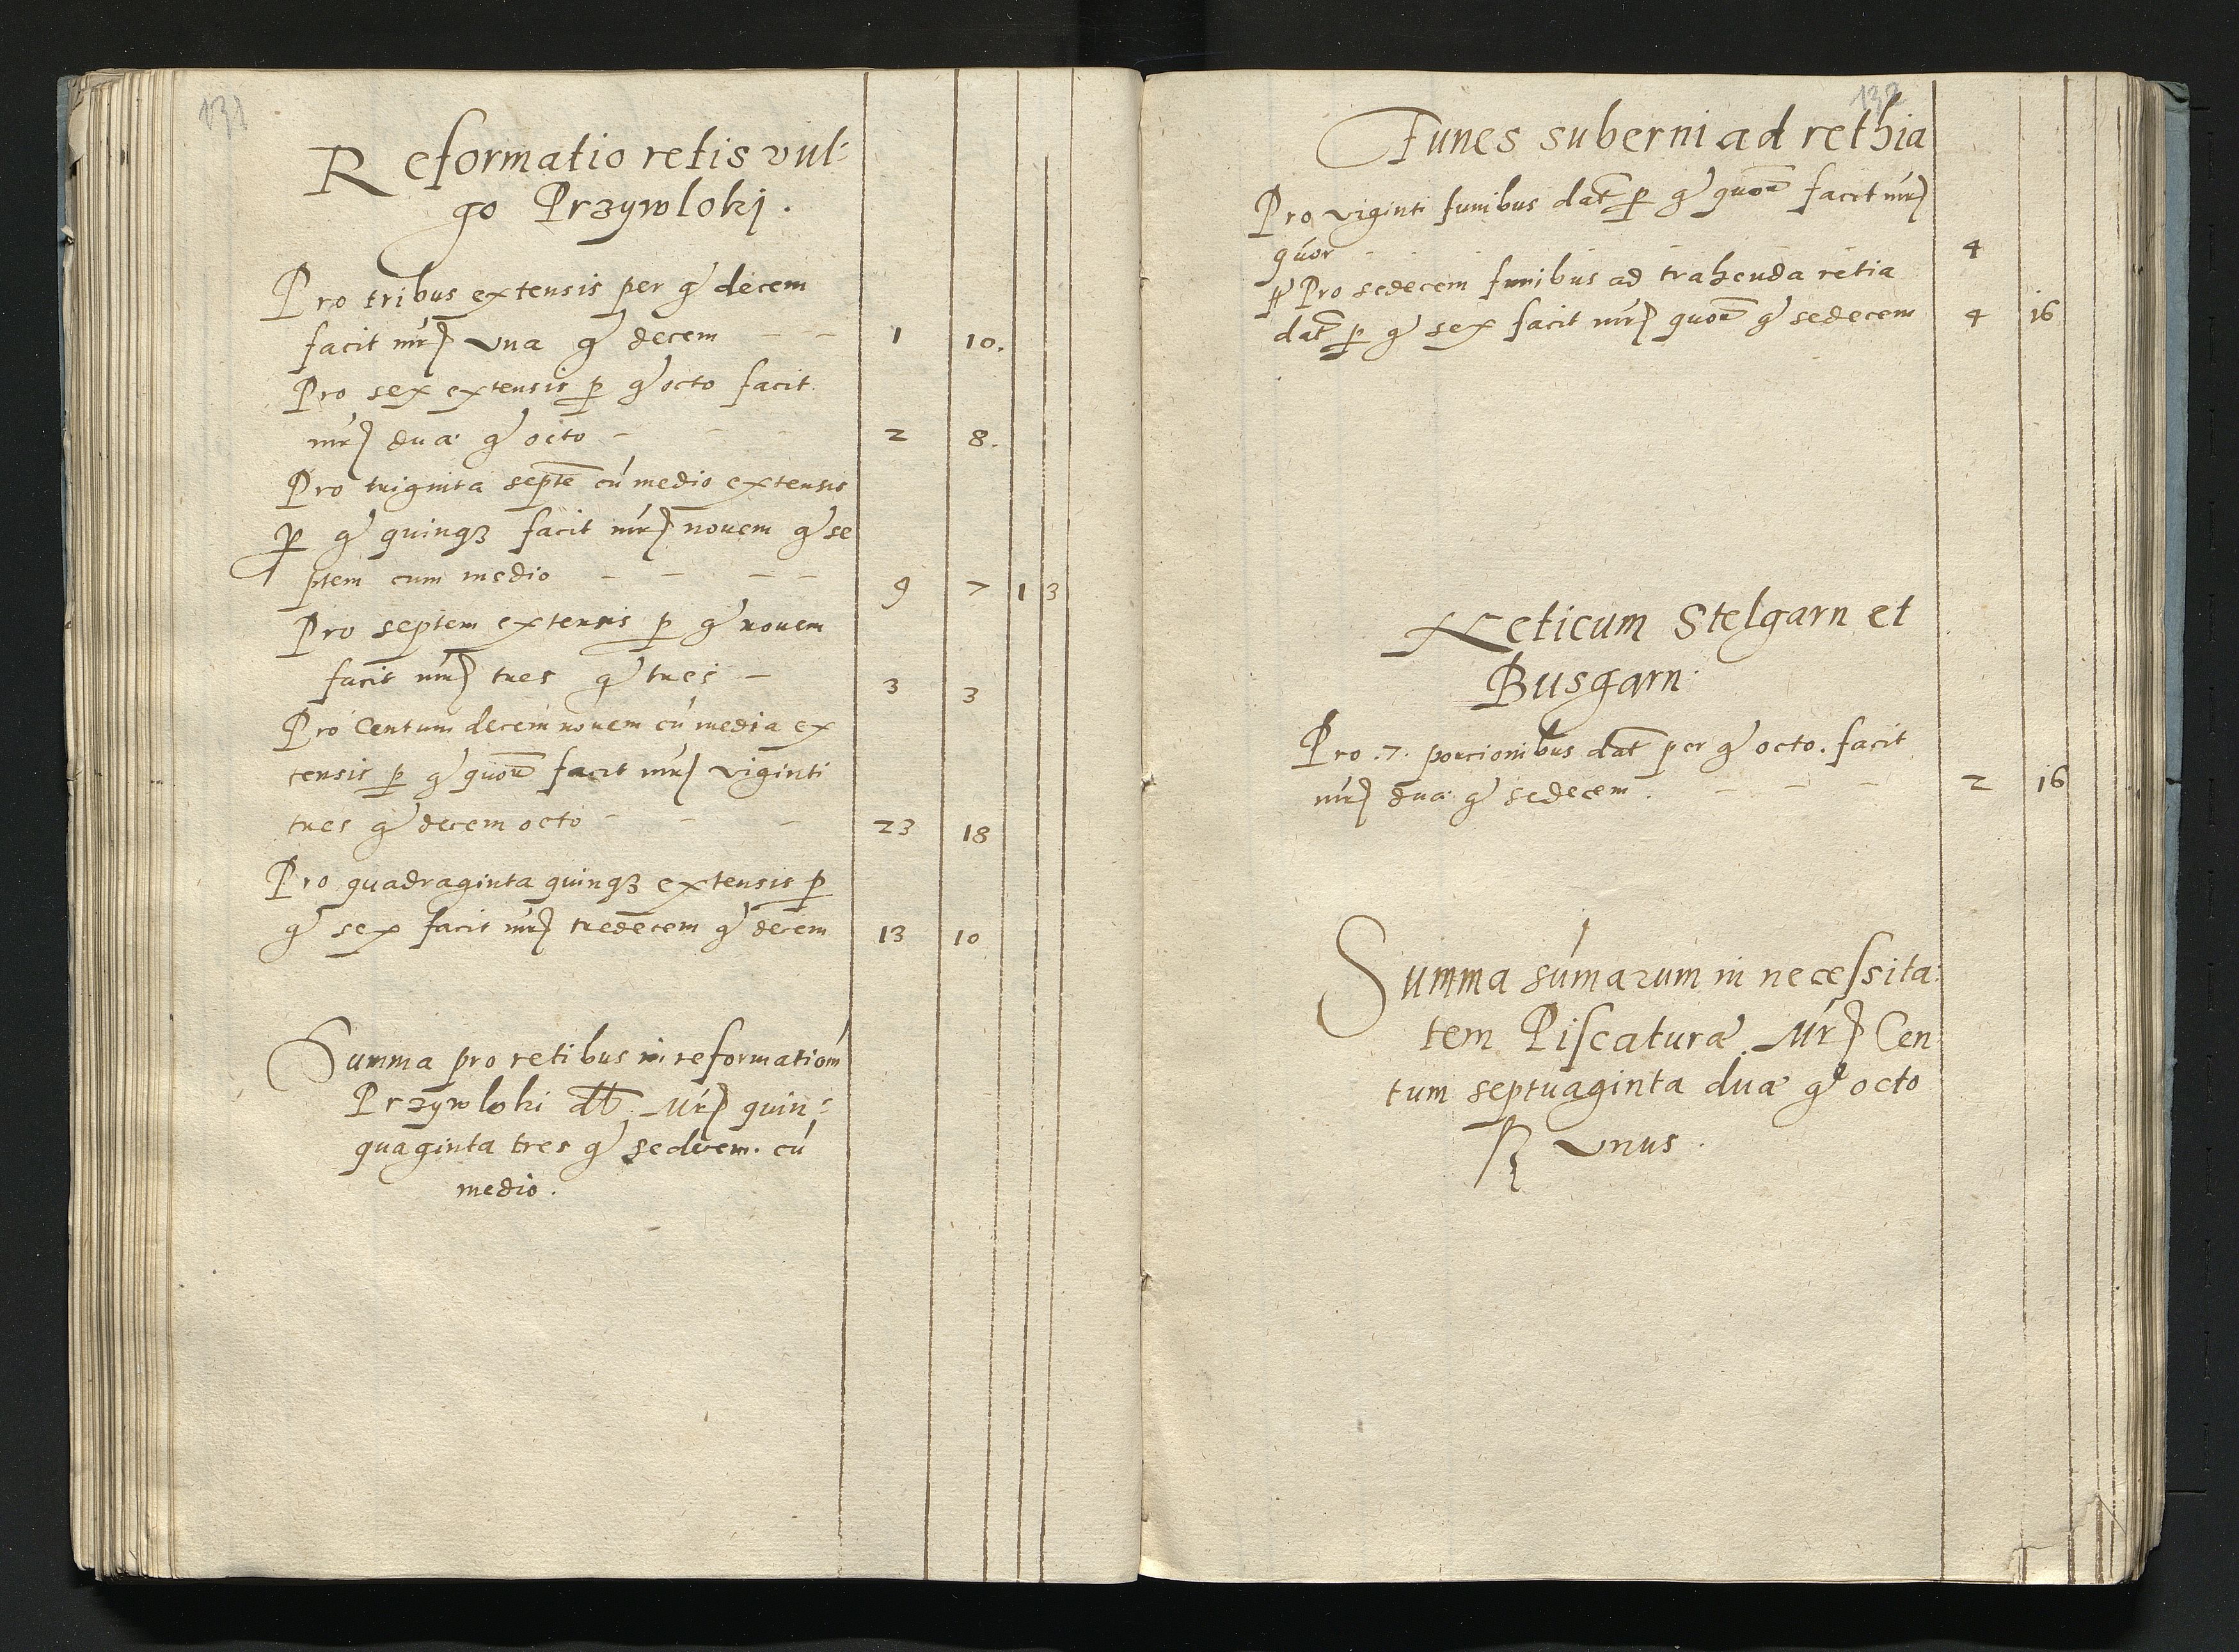 131
Reformatio retis vul-
go Przywlokj.
Pro tribus extensis per g decem
facit mr una g decem - - 1 10.
Pro sex extensis p g octo facit
mr dua g octo - - - 2 8.
Pro triginta septē cú medio extensis
p g quinqꝫ facit mr nouem g se
ptem cum medio - - - - 9 7 1 3
Pro septem extensis p g nouem
facit mr tres g tres - 3 3
Pro Centum decem nouem cú media ex
tensis p g quoꝛ facit mr viginti
tres g decem octo - - - 23 18
Pro quadraginta quinqꝫ extensis p
g sex facit mr tredecem g decem 13 10
Summa pro retibus in reformatiom
Przywloki dt. Mr quin-
quaginta tres g sedecem. cú
medio.
132
Funes suberni ad rethia
Pro viginti funibus dat p g quoꝛ facit mr
quor - - - - 4
Pro sedecem funibus ad trahenda retia
dat p g sex facit mr quoꝛ g sedecem 4 16
Reticum Stelgarn et
Busgarn.
Pro .7. porcionibus dat per g octo. facit
mr dua g sedecem. - - - 2 16
Summa súmarum in necessita:
tem Piscatura. Mr Cen
tum septuaginta dua g octo
unus.